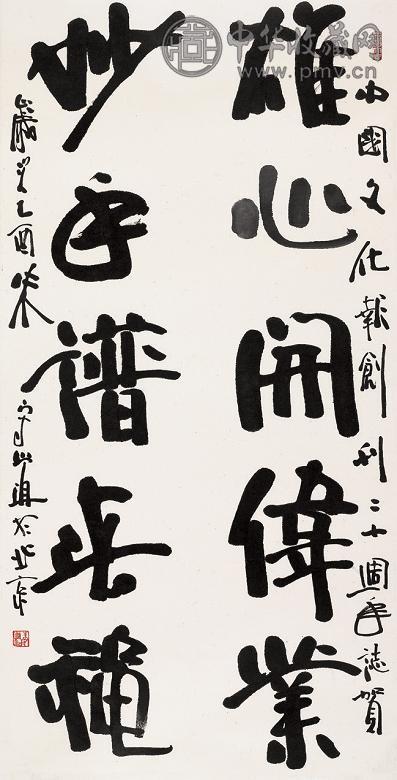 中华收藏网
www.pmv.cn
中國文化報創刊二十週年誌賀
雄心開偉業
妙手譜春穐
歲乙酉於北京